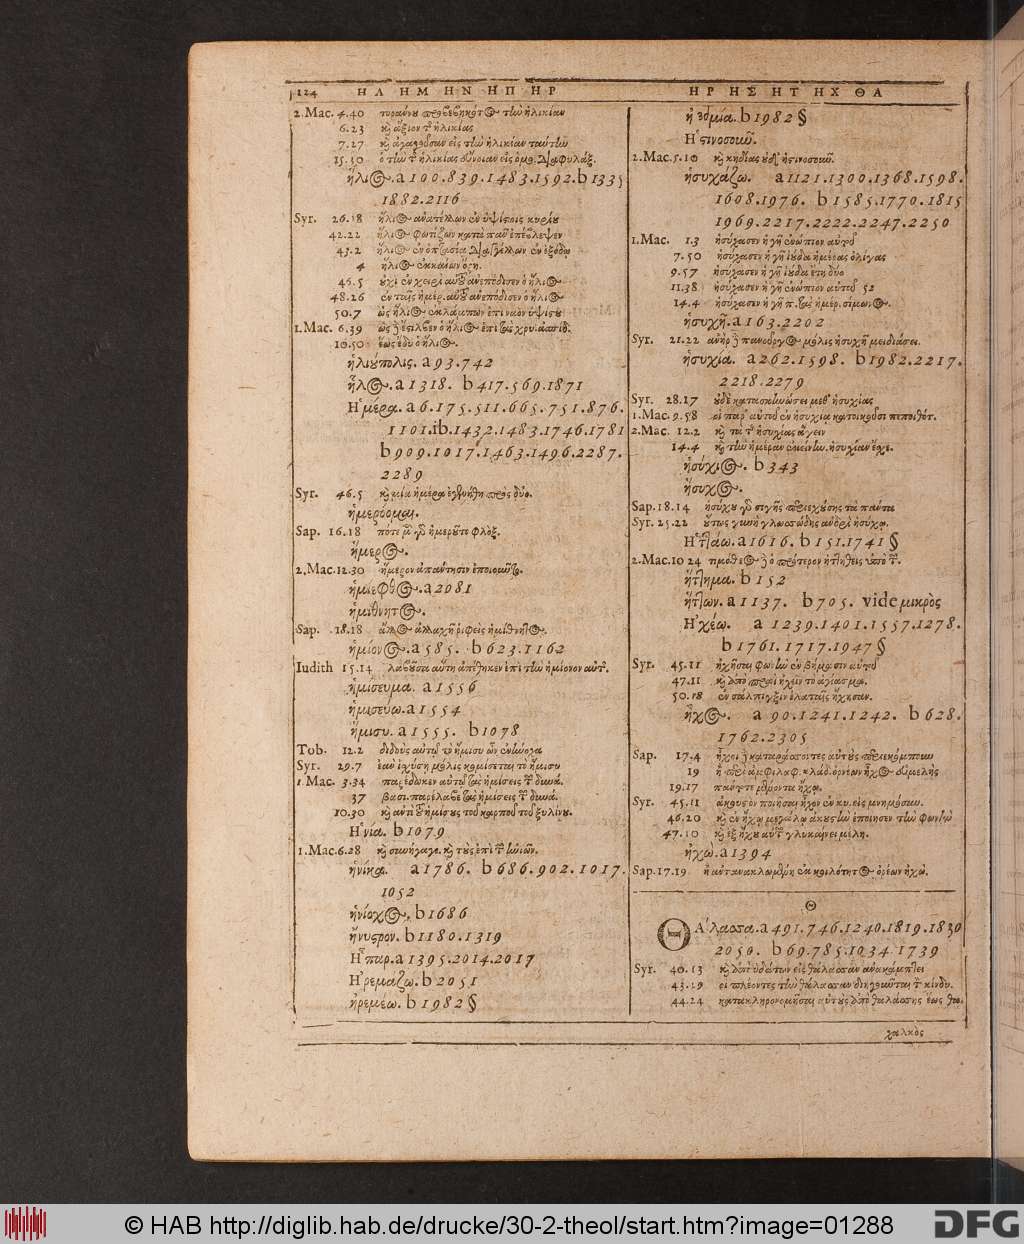 124 ΗΛ ΗΜ ΗΝ ΗΠ ΗΡ
ΗΡ ΗΣ ΗΤ ΗΧ ΘΑ
2.Mac.4.40 τυράννου προβεβηκότος τὴν ἡλικίαν
6.23 καὶ ἄξιον τῆς ἡλικίας
7.27 καὶ ἀγαγοῦσαν εἰς τὴν ἡλικίαν ταύτην
15.30 ὁ τὴν τῆς ἡλικίας εὔνοιαν εἰς ὁμο. διαφυλάξ.
ἥλιος. a 100.839.1483.1592. b 1335
1882.2116
Syr. 26.18 ἥλιος ἀνατέλλων ἐν ὑψίστοις κυρίου
42.22 ἥλιος φωτίζων κατὰ πᾶν ἐπέβλεψεν
43.2 ἥλιος ἐν ὀπτασίᾳ διαγγέλλων ἐν ἐξόδῳ
4 ἥλιος ἐκκαίων ὄρη.
46.5 οὐχὶ ἐν χειρὶ αὐτοῦ ἀνεπόδισεν ὁ ἥλιος
48.26 ἐν ταῖς ἡμέρ. αὐτοῦ ἀνεπόδισεν ὁ ἥλιος
50.7 ὡς ἥλιος ἐκλάμπων ἐπὶ ναὸν ὑψίστου
1.Mac. 6.39 ὡς δὲ ἔστιλβεν ὁ ἥλιος ἐπὶ τὰς χρυ. ἀσπίδ.
10.50 ἕως ἔδυ ὁ ἥλιος.
ἡλιούπολις. a 93.742
ἧλος. a 1318. b 417.569.1871
Ἡμέρα. a 6.175.511.665.751.876.
1101.ib.1432.1483.1746.1781
b 909.1017.1463.1496.2287.
2289
Syr. 46.5 καὶ μία ἡμέρα ἐγενήθη πρὸς δύο.
ἡμερόομαι.
Sap. 16.18 ποτὲ μὲν γὰρ ἡμεροῦτο φλόξ.
ἥμερος.
2.Mac.12.30 ἥμερον ἀπάντησιν ἐποιοῦντο.
ἡμίεφθος. a 2081
ἡμίθνητος.
Sap. 18.18 ἄλλος ἀλλαχῆ ῥιφεὶς ἡμίθνητος.
ἡμίονος. a 585. b 623.1162
Iudith 15.14 λαβοῦσα αὕτη ἐπέθηκεν ἐπὶ τὴν ἡμίονον αὐτῆς.
ἡμίσευμα. a 1556
ἡμισεύω. a 1554
ἥμισυ. a 1555. b 1078
Tob. 12.2 διδοὺς αὐτῷ τὸ ἥμισυ ὧν ἐνήνοχα
Syr. 29.7 ἐὰν ἰσχύσῃ μόλις κομίσεται τὸ ἥμισυ
1.Mac. 3.34 παρέδωκεν αὐτῷ τὰς ἡμίσεις τῶν δυνά.
37 βασι. παρέλαβε τὰς ἡμίσεις τῶν δυνά.
10.30 καὶ ἀντὶ τοῦ ἡμίσους τοῦ καρποῦ τοῦ ξυλίνου.
Ἡνία. b 1079
1.Mac.6.28 καὶ συνήγαγε. καὶ τοὺς ἐπὶ τῶν ἡνιῶν.
ἡνίκα. a 1786. b 686.902.1017.
1052
ἡνίοχος. b 1686
ἤνυστρον. b 1180.1319
Ἧπαρ. a 1395.2014.2017
Ἠρεμάζω. b 2051
ἠρεμέω. b 1982 §
b 1982 §
Ἡττινοσοῦν.
2.Mac.5.10 καὶ κηδίας οὐδ' ἡστινοσοῦν.
ἡσυχάζω. a 1121.1300.1368.1598.
1608.1976. b 1585.1770.1815
1969.2217.2222.2247.2250
1.Mac. 1.3 ἡσύχασεν ἡ γῆ ἐνώπιον αὐτοῦ
7.50 ἡσύχασεν ἡ γῆ ἰούδα ἡμέρας ὀλίγας
9.57 ἡσύχασεν ἡ γῆ ἰούδα ἔτη δύο
11.38 ἡσύχασεν ἡ γῆ ἐνώπιον αὐτοῦ 52
14.4 ἡσύχασεν ἡ γῆ π. τὰς ἡμέρ. σίμωνος.
ἡσυχῆ. a 163.2202
Syr. 21.22 ἀνὴρ δὲ πανοῦργος μόλις ἡσυχῆ μειδιάσει.
ἡσυχία. a 262.1598. b 1982.2217.
2218.2279
Syr. 28.17 οὐδὲ κατασκηνώσει μεθ' ἡσυχίας
1.Mac. 9.58 οἱ παρ' αὐτοῦ ἐν ἡσυχίᾳ κατοικοῦσι πεποιθότ.
2.Mac. 12.2 καὶ τὰ τῆς ἡσυχίας ἄγειν
14.4 καὶ τὴν ἡμέραν ἐκείνην. ἡσυχίαν ἔσχε.
ἡσύχιος. b 343
ἥσυχος.
Sap.18.14 ἡσύχου γὰρ σιγῆς περιεχούσης τὰ πάντα
Syr.25.22 οὕτως γυνὴ γλωσσώδης ἀνδρὶ ἡσύχῳ.
Ἡττάω. a 1616. b 151.1741 §
2.Mac.10 24 τιμόθεος δὲ ὁ πρότερον ἡττηθεὶς ὑπὸ τῶν.
ἥττημα. b 152
ἥττων. a 1137. b 705. vide μικρὸς
Ἠχέω. a 1239.1401.1557.1278.
b 1761.1717.1947 §
Syr. 45.11 ἠχῆσαι φωνὴν ἐν βήμασιν αὐτοῦ
47.11 καὶ ἀπὸ πρωὶ ἠχεῖν τὸ ἁγίασμα.
50.18 ἐν σάλπιγξιν ἐλαταῖς ἤχησαν.
ἦχος. a 90.1241.1242. b 628.
1762.2305
Sap. 17.4 ἦχοι δὲ καταράσσοντες αὐτοὺς περιεκόμπουν
19 ἢ περὶ ἀμφιλαφ. κλάδ. ὀρνέων ἦχος εὐμελὴς
19.17
Syr. 45.11 ἀκουστὸν ποιῆσαι ἦχον ἐν ναῷ. εἰς μνημόσυν.
46.20 καὶ ἐν ἤχῳ μεγάλῳ ἀκουστὴν ἐποίησεν τὴν φωνὴν
47.10 καὶ ἐξ ἤχου αὐτῶν γλυκαίνει μέλη.
ἠχώ. a 1394
Sap.17.19 ἢ ἀντανακλωμένη ἐκ κοιλότητος ὀρέων ἠχώ.
Θ
ΘΑλασσα. a 491.746.1240.1819.1830
2050. b 69.785.1034.1739
Syr. 40.13 καὶ ἀπὸ ὑδάτων εἰς θάλασσαν ἀνακάμπτει
43.29 οἱ πλέοντες τὴν θάλασσαν διηγοῦνται τὸν κίνδυ.
44.24 κατακληρονομῆσαι αὐτοὺς ἀπὸ θαλάσσης ἕως θα.
χαλκὸς
© HAB http://diglib.hab.de/drucke/30-2-theol/start.htm?image=01288
DFG